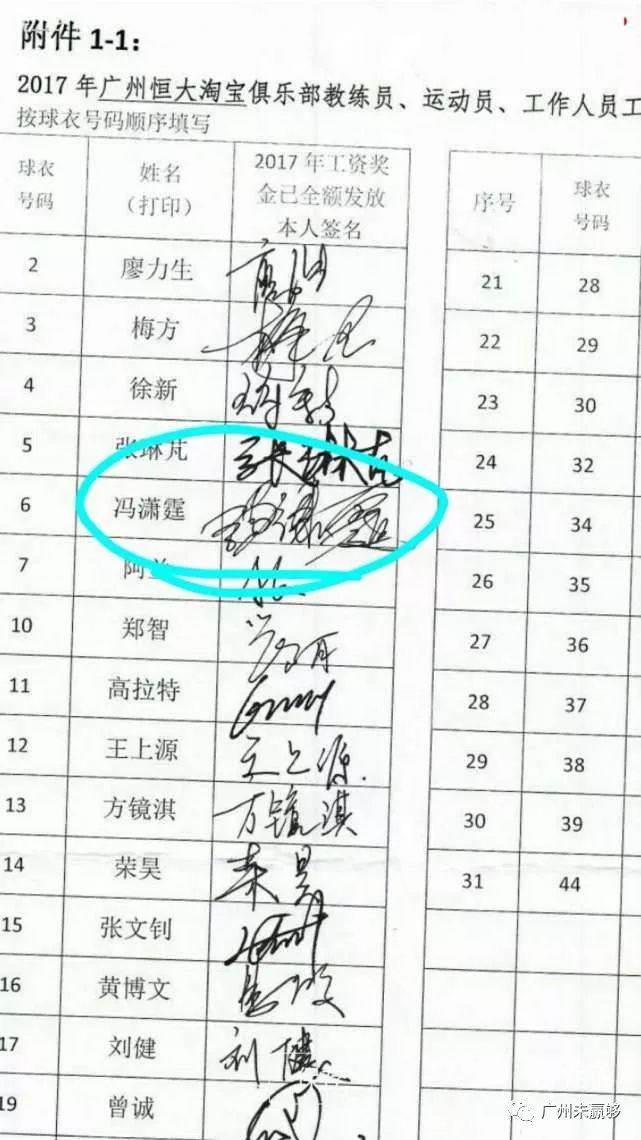 附件 1-1：
2017 年广州恒大淘宝俱乐部教练员、运动员、工作人员工
按球衣号码顺序填写
球衣号码 姓名（打印） 2017 年工资奖金已全额发放本人签名 序号 球衣号码
2 廖力生 21 28
3 梅方 22 29
4 徐新 23 30
5 张琳芃 张琳芃 24 32
6 冯潇霆 25 34
7 阿兰 26 35
10 郑智 27 36
11 高拉特 28 37
12 王上源 王上源 29 38
13 方镜淇 方镜淇 30 39
14 荣昊 荣昊 31 44
15 张文钊
16 黄博文
17 刘健 刘健
19 曾诚
广州未赢够